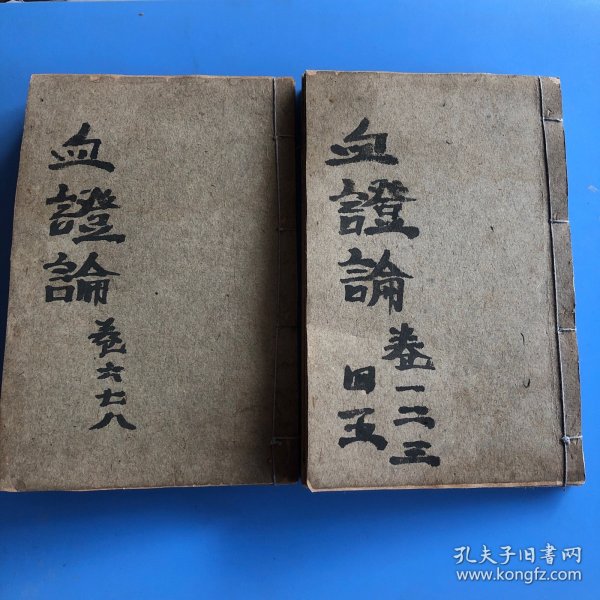 血證論
卷六七八
血證論
卷一二三
四五
孔夫子旧书网
www.kongfz.com